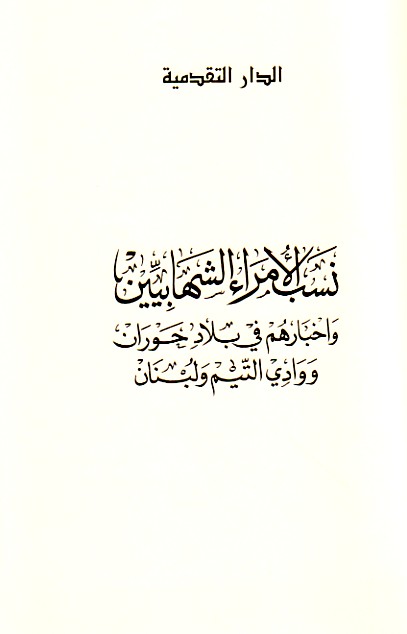 الدار التقدمية
نَسَبُ الأُمَرَاءِ الشِّهَابِيِّينْ
وَاخبَارهُمْ فِي بلَادِ حَوْرَانْ
وَوَادِي التَّيْمْ وَلُبْنَانْ